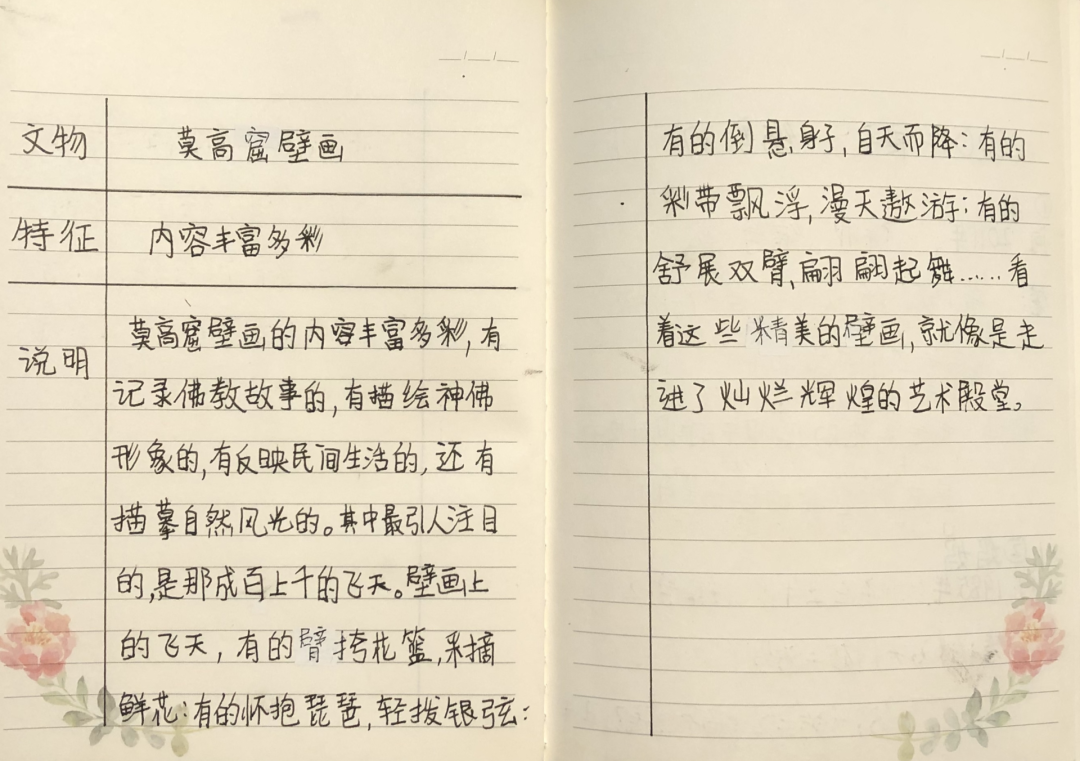 文物 莫高窟壁画
特征 内容丰富多彩
说明 莫高窟壁画的内容丰富多彩,有
记录佛教故事的,有描绘神佛
形象的,有反映民间生活的,还有
描摹自然风光的。其中最引人注目
的,是那成百上千的飞天。壁画上
的飞天,有的臂挎花篮,采摘
鲜花;有的怀抱琵琶,轻拨银弦;
有的倒悬身子,自天而降;有的
彩带飘浮,漫天遨游;有的
舒展双臂,翩翩起舞……看
着这些精美的壁画,就像是走
进了灿烂辉煌的艺术殿堂。